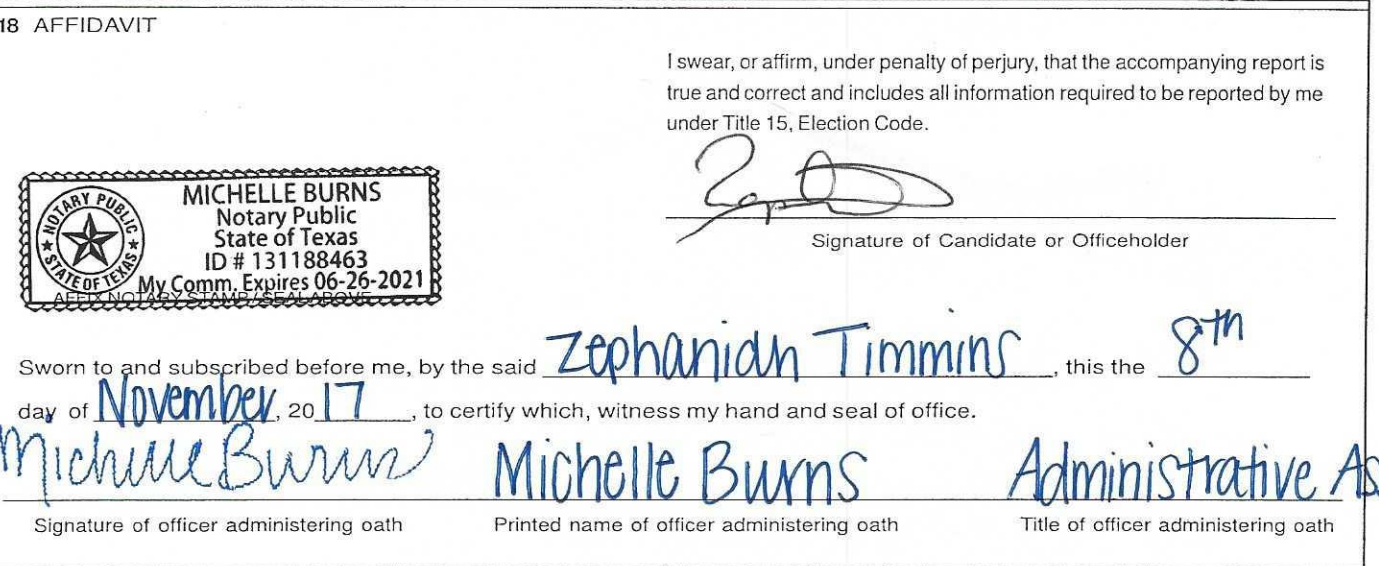 18 AFFIDAVIT
I swear, or affirm, under penalty of perjury, that the accompanying report is
true and correct and includes all information required to be reported by me
under Title 15, Election Code.
Signature of Candidate or Officeholder
NOTARY PUBLIC
STATE OF TEXAS
MICHELLE BURNS
Notary Public
State of Texas
ID # 131188463
My Comm. Expires 06-26-2021
AFFIX NOTARY STAMP / SEAL ABOVE
Sworn to and subscribed before me, by the said Zephaniah Timmins, this the 8th
day of November, 20 17, to certify which, witness my hand and seal of office.
Michelle Burns Michelle Burns Administrative As
Signature of officer administering oath Printed name of officer administering oath Title of officer administering oath